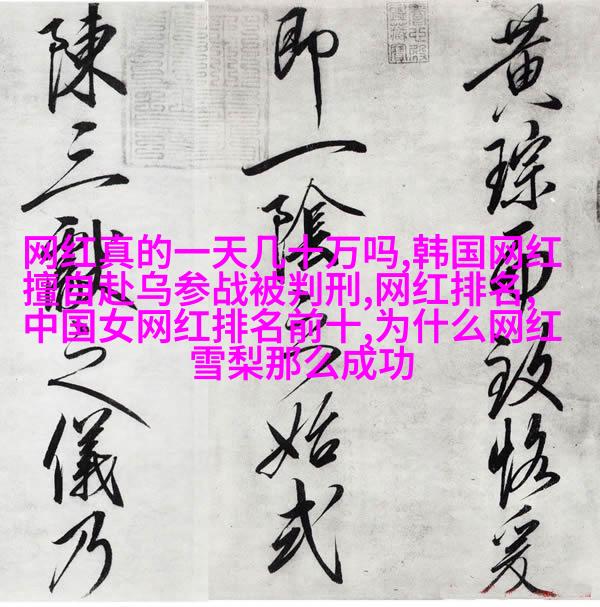 黄琮而致恪爰
即一陰之始式
陳三獻之儀乃
网红真的一天几十万吗,韩国网红
擅自赴乌参战被判刑,网红排名,
中国女网红排名前十,为什么网红
雪梨那么成功